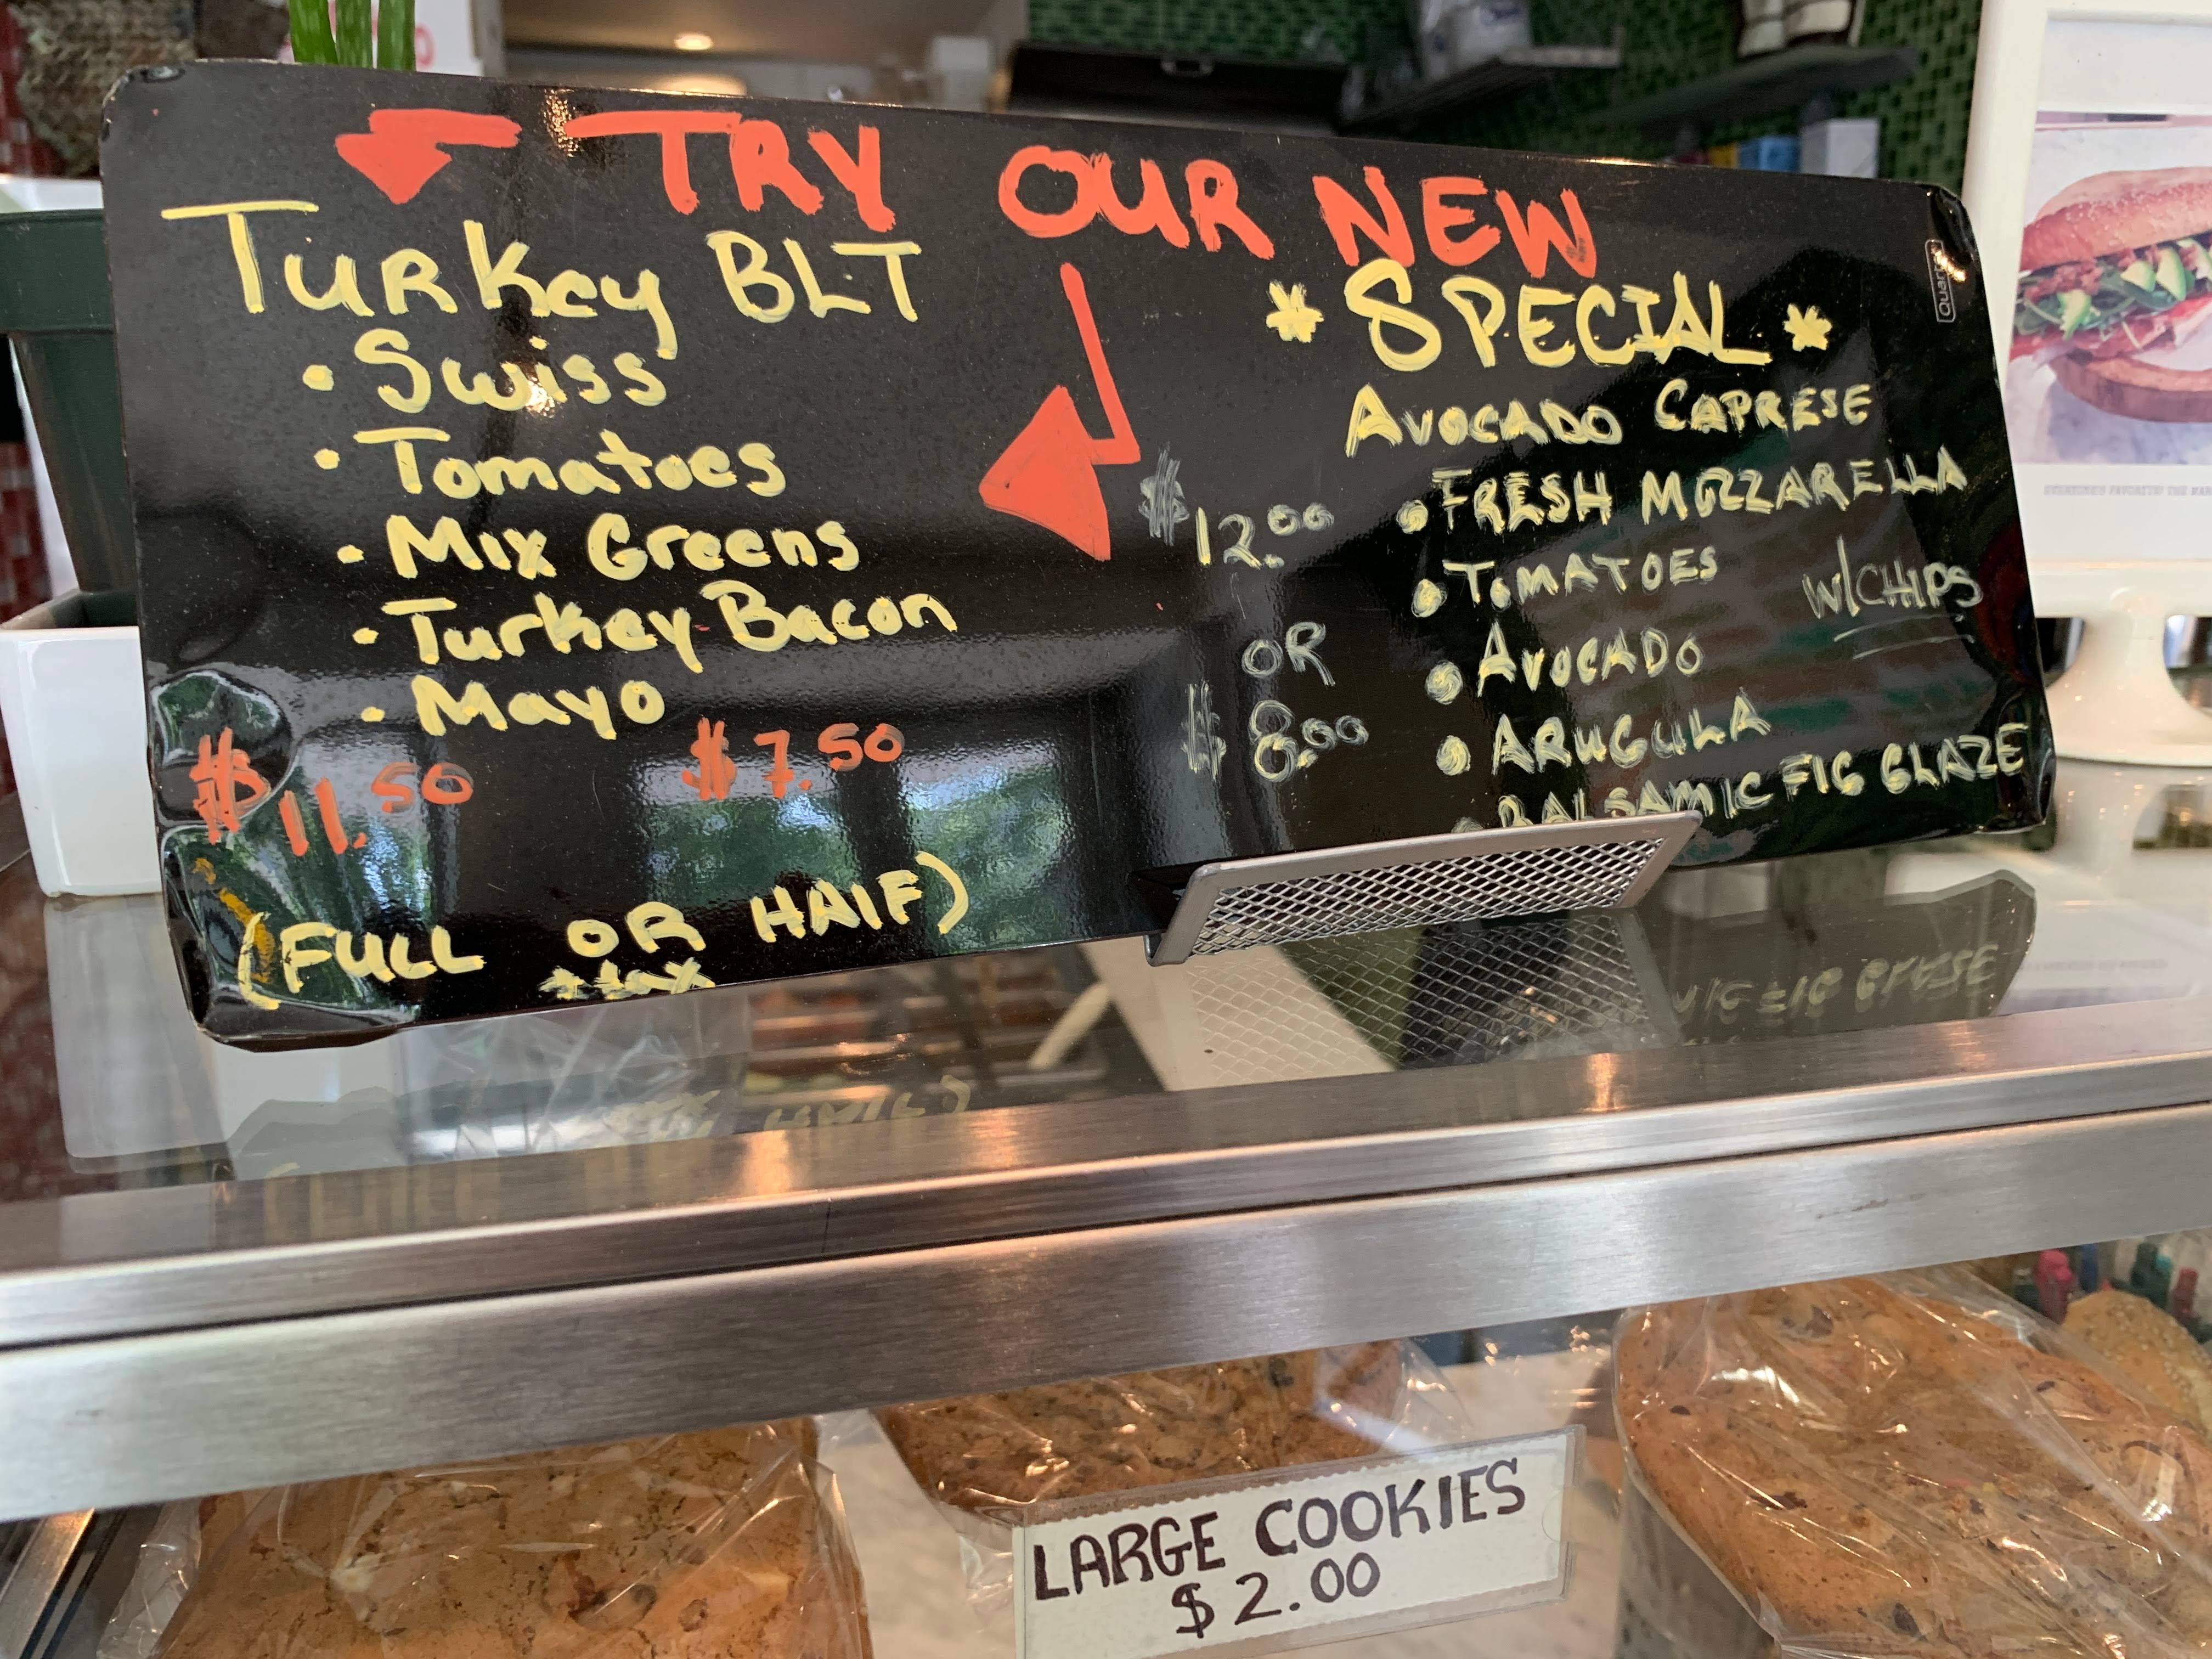 TRY OUR NEW
Turkey BLT
• Swiss
• Tomatoes
• Mix Greens
• Turkey Bacon
• Mayo
$11.50 $7.50
(FULL OR HAlF)
+tax
*SPECIAL*
AVOCADO CAPRESE
• FRESH MOZZARELLA
• TOMATOES
W/CHIPS
• AVOCADO
• ARUGULA
• BALSAMIC FIG GLAZE
$12.00
OR
$8.00
LARGE COOKIES
$2.00